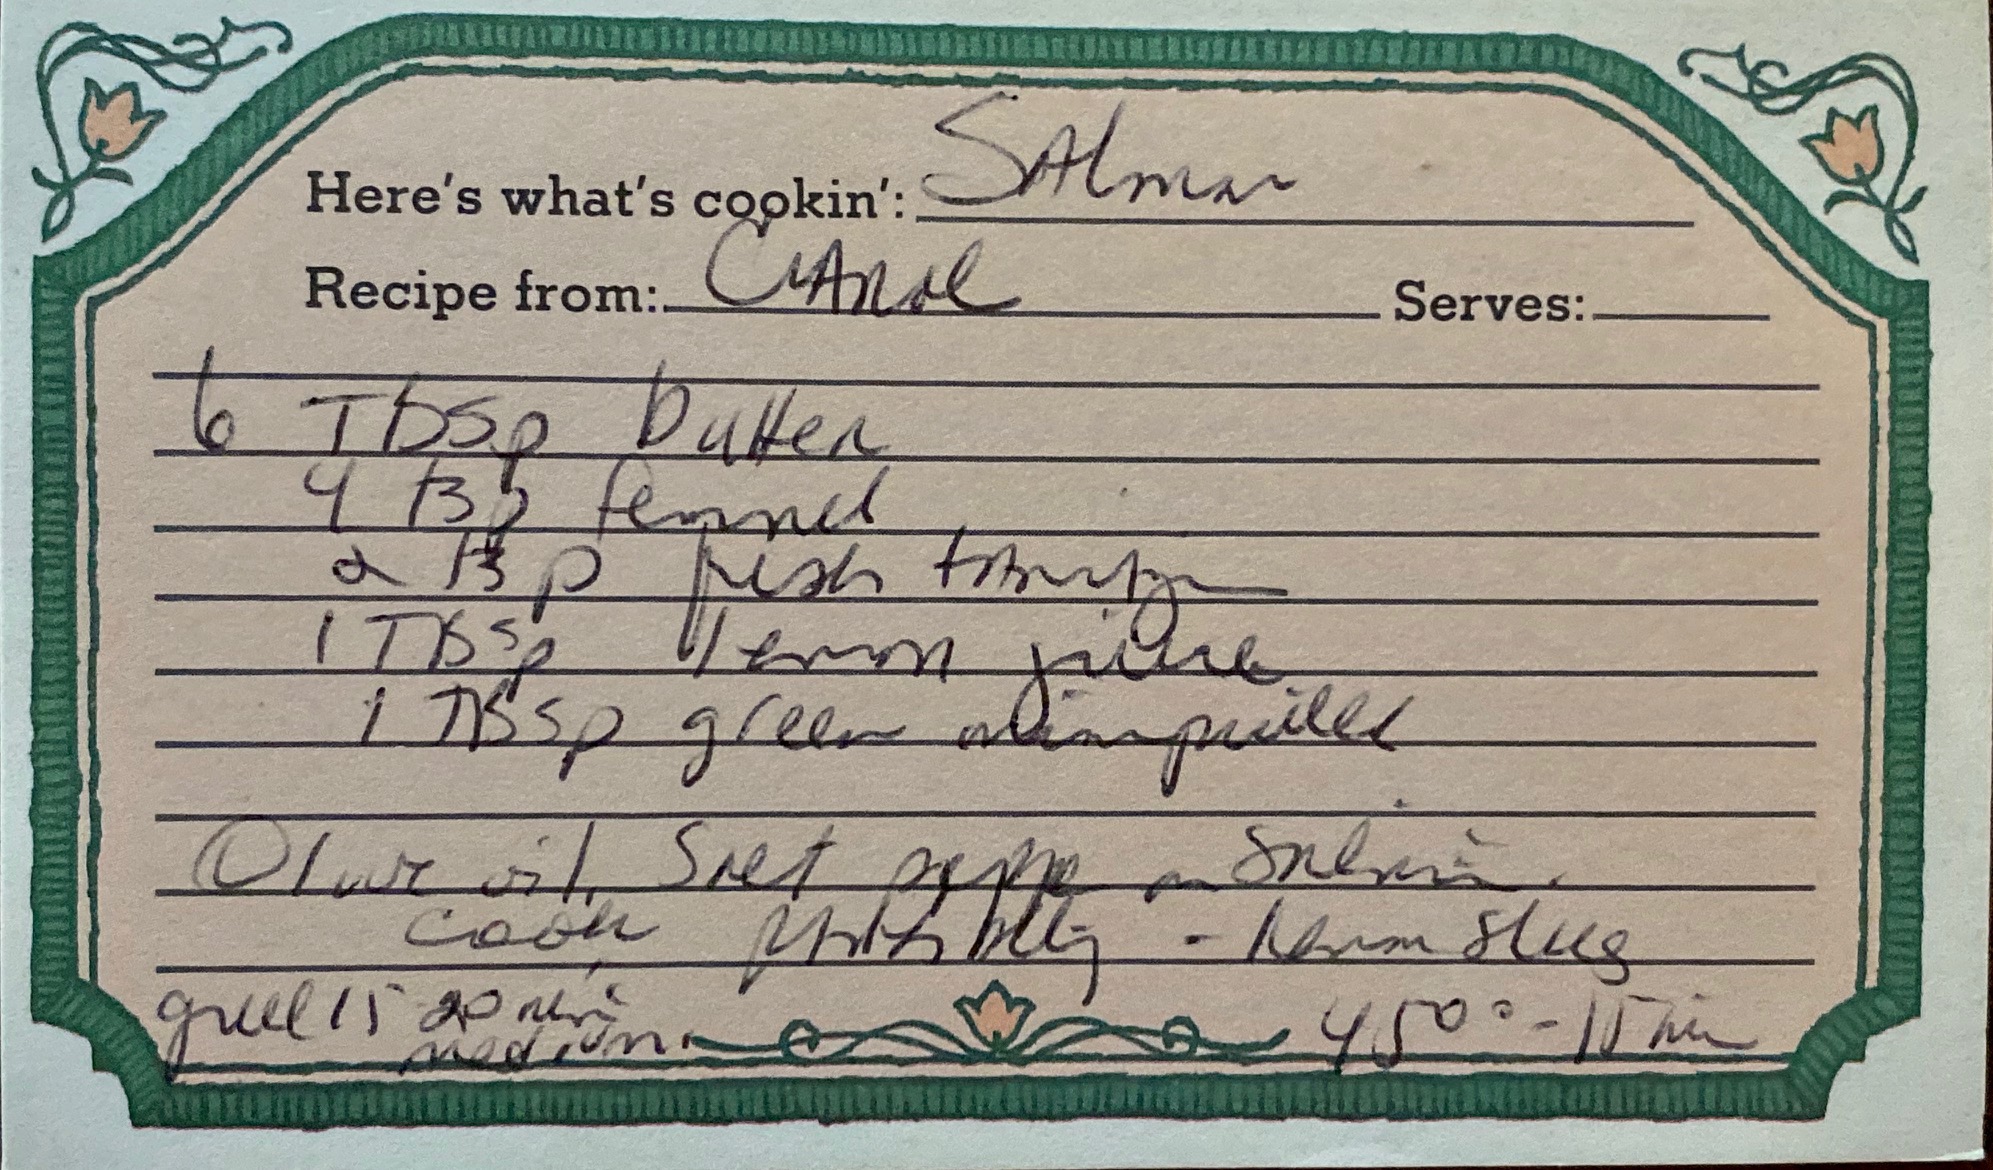 Here's what's cookin': Salmon
Recipe from: Carol Serves:
6 Tbsp butter
4 Tbsp fennel
2 Tbsp fresh tarragon
1 Tbsp lemon juice
1 Tbsp green
Olive oil, Salt pepper on Salmon.
cook - lemon slices
grill 15 20 min 450° - 15 min
medium.